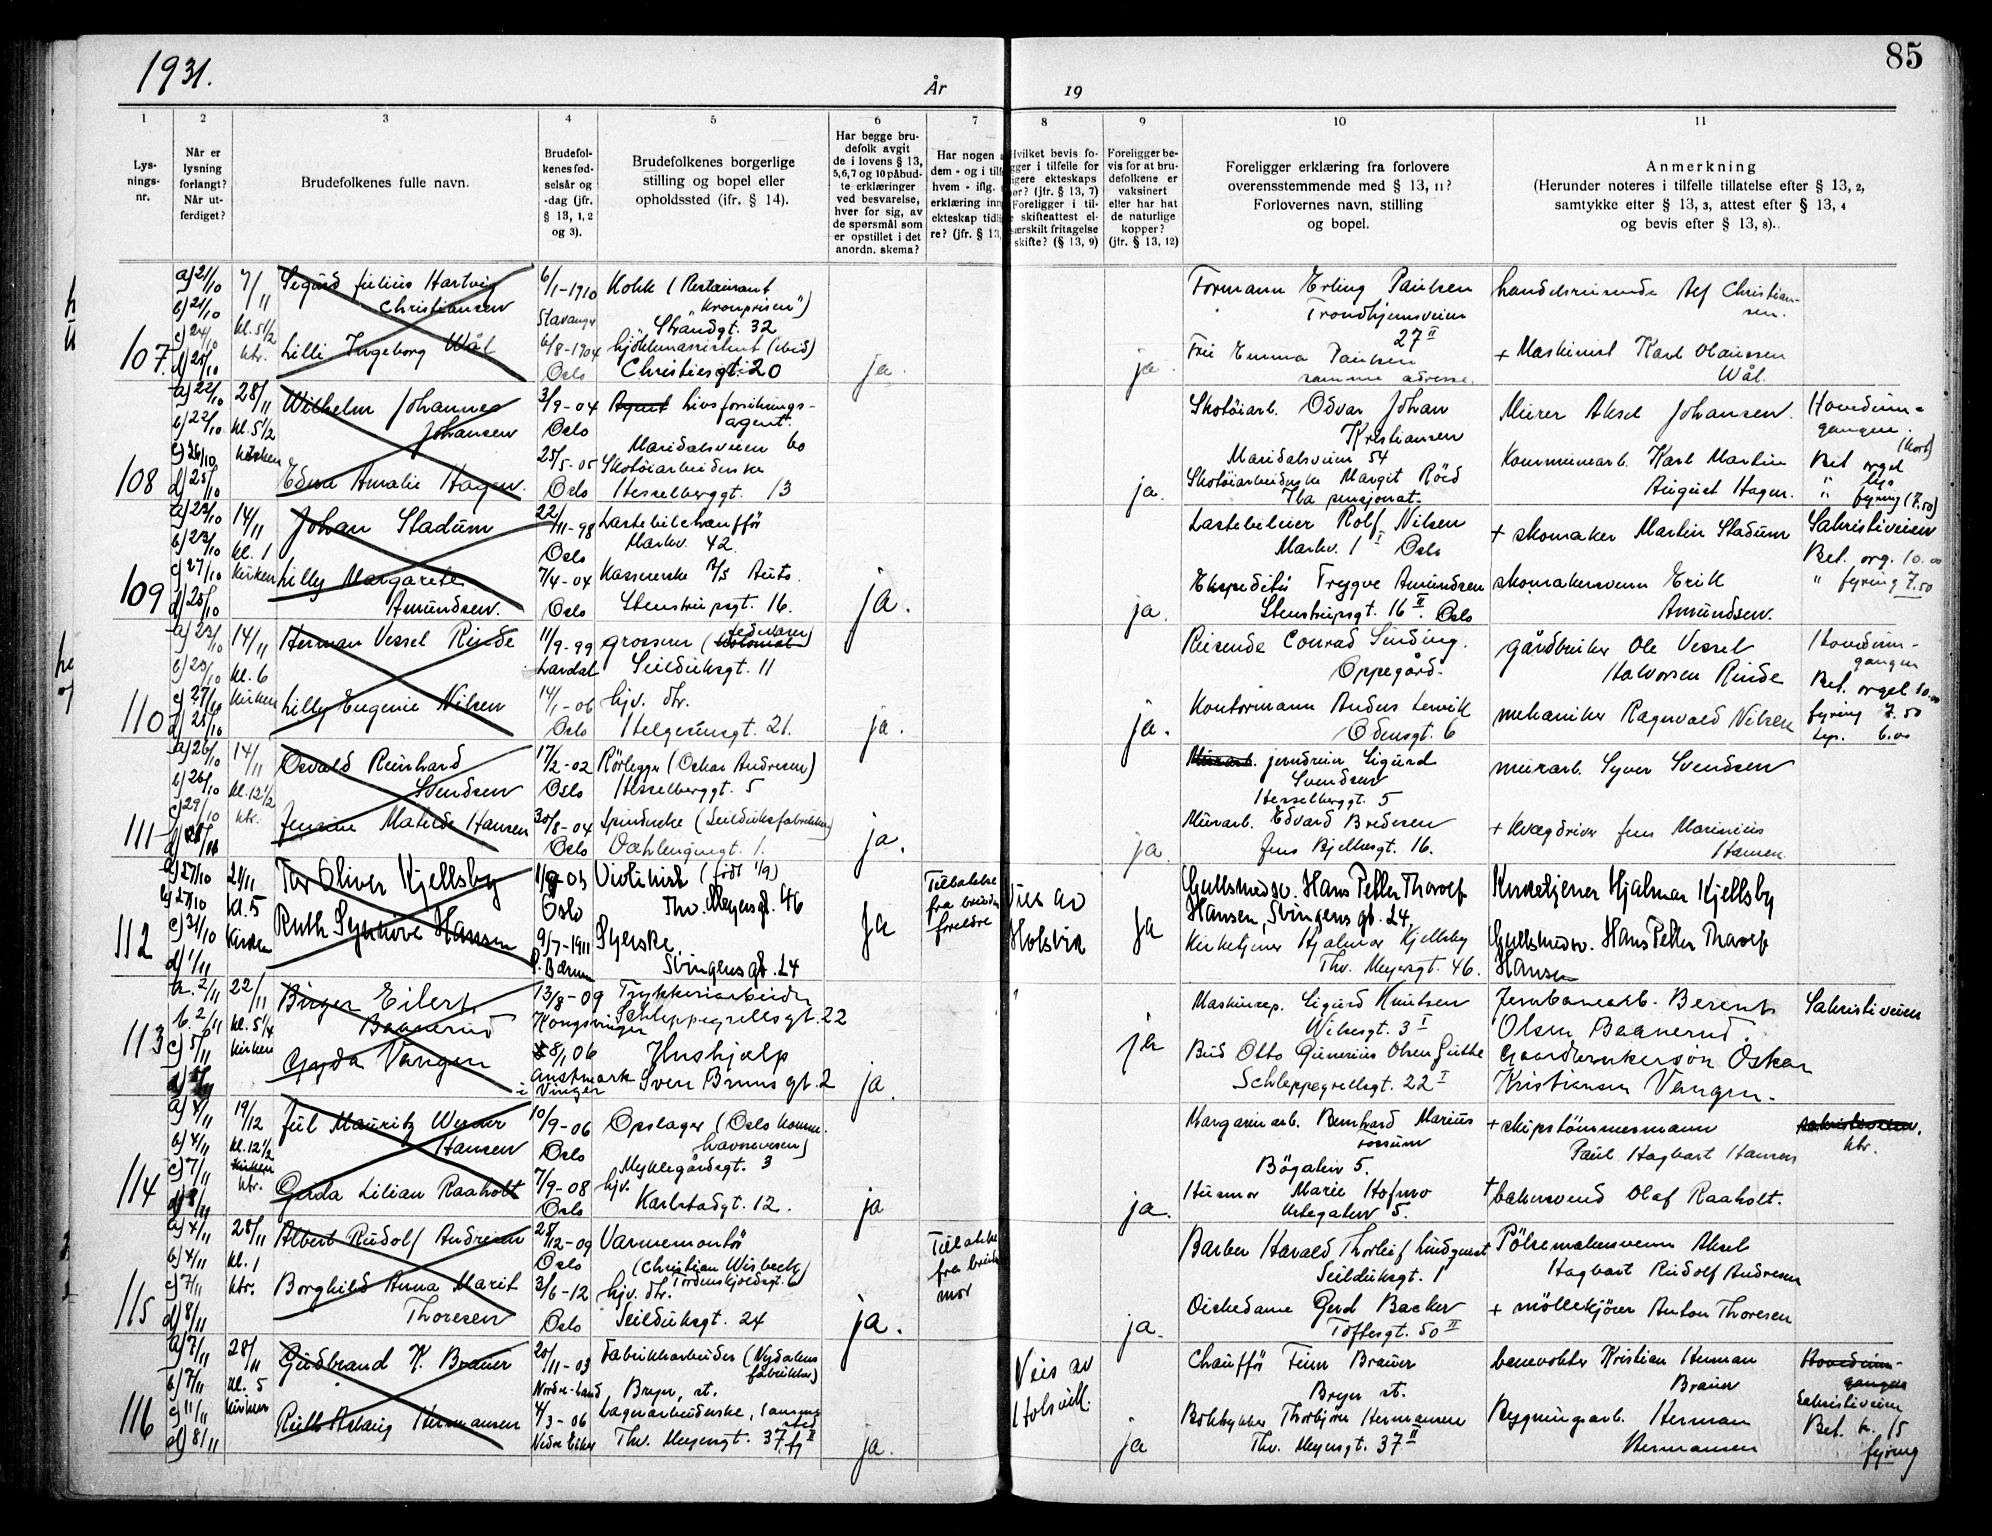 1931.
År
19
85
1
2
3
4
5
6
7
8
9
10
11
Lysnings-
nr.
Når er
lysning
forlangt?
Når ut-
ferdiget?
Brudefolkenes fulle navn.
Brudefol-
kenes fød-
selsår og
-dag (jfr.
§ 13, 1, 2
og 3).
Brudefolkenes borgerlige
stilling og bopel eller
opholdssted (ifr. § 14).
Har begge bru-
defolk avgit
de i lovens § 13,
5,6,7 og 10 påbud-
te erklæringer
ved besvarelse,
hver for sig, av
de spørsmål som
er opstillet i det
anordn. skema?
Har nogen a
dem - og i tilf
hvem - iflg.
erklæring inn
ekteskap tidli
re? (jfr. § 13,
Hvilket bevis fo-
gger i tilfelle for
igere ekteskaps
hør? (jfr. § 13, 7)
Foreligger i til-
skifteattest el-
særskilt fritagelse
skifte? (§ 13, 9)
Foreligger be-
vis for at bru-
defolkene er
vaksinert
eller har hat
de naturlige
kopper?
(jfr. § 13, 12)
Foreligger erklæring fra forlovere
overensstemmende med § 13, 11?
Forlovernes navn, stilling
og bopel.
Anmerkning
(Herunder noteres i tilfelle tillatelse efter § 13, 2,
samtykke efter § 13, 3, attest efter § 13, 4
og bevis efter § 13, 8)..
107.
a) 21/10
b) 21/10
c) 24/10
d) 25/10
7/11
kl. 5 1/2
ktr.
Sigurd Julius Hartvig
Christiansen
Lilli Ingeborg Wål
6/1-1910
Stavanger
6/8-1904
Oslo
Kokk (Restaurant
"Kronprisen")
Strandgt. 32
kjøkkenassistent (ibid)
Christiesgt. 20
ja.
ja
Formann Erling Paulsen
Trondhjemsveien
27 II
Fru Emma Paulsen
samme adresse.
handelsreisende Alf Christian-
sen.
+ Maskinist Karl Olaussen
Wål.
108
a) 22/10
b) 22/10
c) 26/10
d) 25/10
28/11
kl. 5 1/2
kirken
Wilhelm Johannes
Johansen
Edna Amalie Hagen.
3/9-04
Oslo
25/5-05
Oslo
Agent Livsforsikrings-
agent.
Maridalsveien 60
Skotøiarbeiderske
Hesselberggt. 13
ja.
Skotøiarb. Odvar Johan
Kristiansen
Maridalsveien 54
Skotøiarbeiderske Margit Röed
Ila pensjonat.
Murer Aksel Johansen.
Kommunearb. Karl Martin
August Hagen.
Hovedinn-
gangen.
(kort)
Bet orgel
" lys
" fyring (7.50)
109
a) 23/10
b) 23/10
c) 27/10
d) 25/10
14/11
kl. 1
kirken
Johan Stadum
Lilly Margarete
Amundsen.
22/11-98
Oslo
7/4-04
Oslo
Lastebilchauffør
Markv. 42
Kassererske A/S Auto.
Stenstrupsgt. 16.
ja.
ja.
Lastebileier Rolf Nilsen
Markv. 1 I Oslo
Ekspeditør Trygve Amundsen
Stenstrupsgt. 16 II. Oslo
+ skomaker Martin Stadum
skomakersvenn Erik
Amundsen.
Sakristiveien
Bet. org. 10.00
" fyring 7.50
110
a) 23/10
b) 23/10
c) 27/10
d) 25/10
14/11
kl. 6
kirken
Herman Vessel Rinde
Lilly Eugenie Nilsen
11/9-99
Lardal
14/1-06
Oslo
grosserer (
Seilduksgt. 11
hjv. dtr.
Helgesensgt. 21.
ja.
ja.
Reisende Conrad Sinding.
Oppegård.
Kontormann Anders Lervik
Odensgt. 6
gårdbruker Ole Vessel
Halvorsen Rinde
mekaniker Ragnvald Nilsen
Hovedinn-
gangen
Bet. orgel 10.00
fyring 7.50
6.00
111
a) 26/10
b) 26/10
c) 29/10
14/11
kl. 12 1/2
ktr.
Osvald Reinhard
Svendsen
Jensine Matilde Hansen
17/2-02
Oslo
30/8-04
Oslo
Rørlegger (Oskar Andresen)
Hesselberggt. 5
Spinderske (Seilduksfabrikken)
Dæhlenggt. 1.
ja.
ja
Murarb. jerndreier Sigurd
Svendsen
Hesselberggt. 5
Murarb. Edvard Bredesen
Jens Bjelkesgt. 16.
murarb. Syver Svendsen
+ kvægdriver Jens Marinius
Hansen
112
a) 27/10
b) 27/10
c) 31/10
d) 1/11
21/11
kl. 5
Kirken
Tor Oliver Kjellsby
Ruth Synnöve Hansen
1/9-03
Oslo
9/7-1911
V. Bærum
Violinist (født 1/9)
Thv. Meyersgt. 46
Syerske
Svingens gt. 24
Ja
Tillatelse
fra brudens
foreldre
Vies av
Holsvik
Ja
Gullsmedsv. Hans Petter Tharoef
Hansen, Svingens gt. 24,
Kirketjener Hjalmar Kjellsby
Thv. Meyersgt. 46.
Kirketjener Hjalmar Kjellsby
Gullsmedsv. Hans Petter Tharoef
Hansen
113
a. 2/11
b. 2/11
c) 5/11
22/11
kl. 5 1/4
kirken
Birger Eilert
Baanerud
Gyda Vangen
13/8-09
Kongsvinger
8/1 06
Austmark
i Vinger
Trykkeriarbeider
Schleppegrellsgt. 22
Hushjælp
Sven Bruns gt. 2
ja.
ja
Maskinrep. Sigurd Knutsen
Wilsesgt. 3 I
Bud Otto Gunerius Olsen Guthe
Schleppegrellsgt. 22 I
Jernbanearb. Berent
Olsen Baanerud.
Gaardbrukersøn Oskar
Kristiansen Vangen.
Sakristiveien
114
a) 4/11
b) 4/11
c) 7/11
d) 8/11
19/12
kl. 12 1/2
kirken
ktr.
Jul Mauritz Werner
Hansen
Gerda Lilian Raaholt
10/9-06
Oslo
7/9-08
Oslo
Opslager (Oslo komm.
havnevesen)
Myklegårdsgt. 3
hjv.
Karlstadgt. 12.
ja
ja.
Margarinarb. Bernhard Marius
Fossum
Bøgaten 5.
Husmor Marie Hofmo
Urtegaten 5.
+ skipstømmermann
Paul Hagbart Hansen
+ bakersvend Olaf Raaholt.
sakristiveien.
ktr.
115
a) 4/11
b) 4/11
c) 7/11
d) 8/11
28/11
kl. 1
ktr.
Albert Rudolf Andresen
Borghild Anna Marit
Thoresen
28/12-09
Oslo
3/6-12
Oslo
Varmemontør
(Christian Wisbech
Tordenskjoldsgt. 6)
hjv. dtr.
Seilduksgt. 24
ja.
Tillatelse
fra brudens
mor
ja.
Barber Harald Thorleif Lindquist
Seilduksgt. 1
Diskedame Gerd Backer
Toftesgt. 50 II
Pølsemakersvenn Aksel
Hagbart Rudolf Andresen
+ møllekjører Anton Thoresen
116
a) 7/11
b) 7/11
c) 11/11
d) 8/11
28/11
kl. 5
kirken
Gudbrand K. Brauer
Ruth Aslaug Hermansen
20/11-03
Nordre-Land
4/3-06
Nedre Eiker
Fabrikkarbeider (Nydalens
fabrikker)
Bryn, st.
Lagerarbeiderske,
Thv. Meyersgt. 37 II
ja.
Vies av
Holsvik.
ja
Chauffør Finn Brauer
Bryn st.
Bokbrekker Thorbjørn Hermansen
Thv. Meyersgt. 37 II
banevokter Kristian Herman
Brauer
Bygningsarb. Herman
Hermansen
Hovedinn-
gangen
Sakristiveien
Bet. kr. 15
fyring